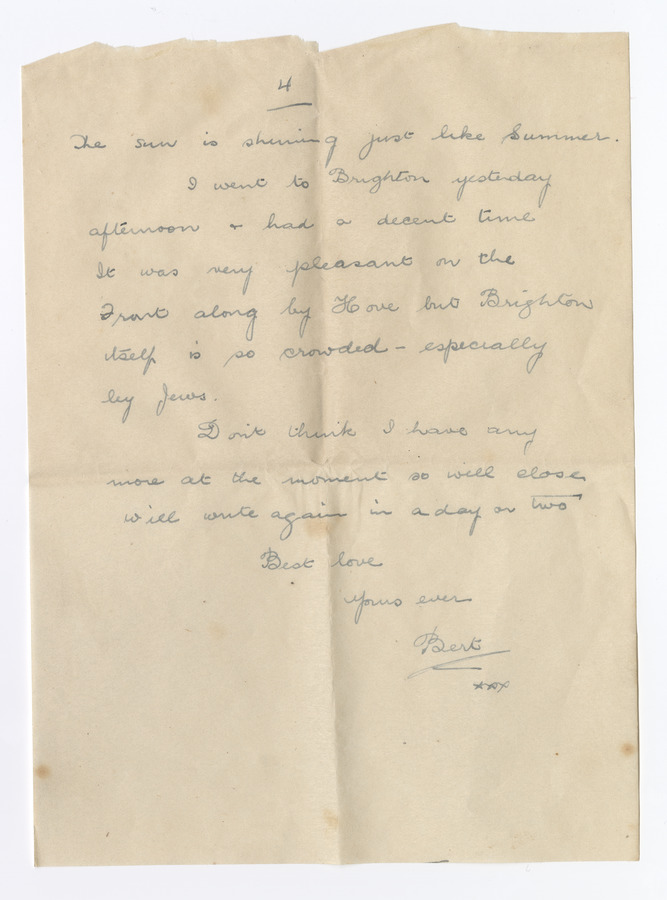 4
The sun is shining just like Summer.
I went to Brighton yesterday
afternoon & had a decent time
It was very pleasant on the
Front along by Hove but Brighton
itself is so crowded - especially
by Jews.
Don't think I have any
more at the moment so will close,
will write again in a day or two
Best love
Yours ever
Bert
xxx